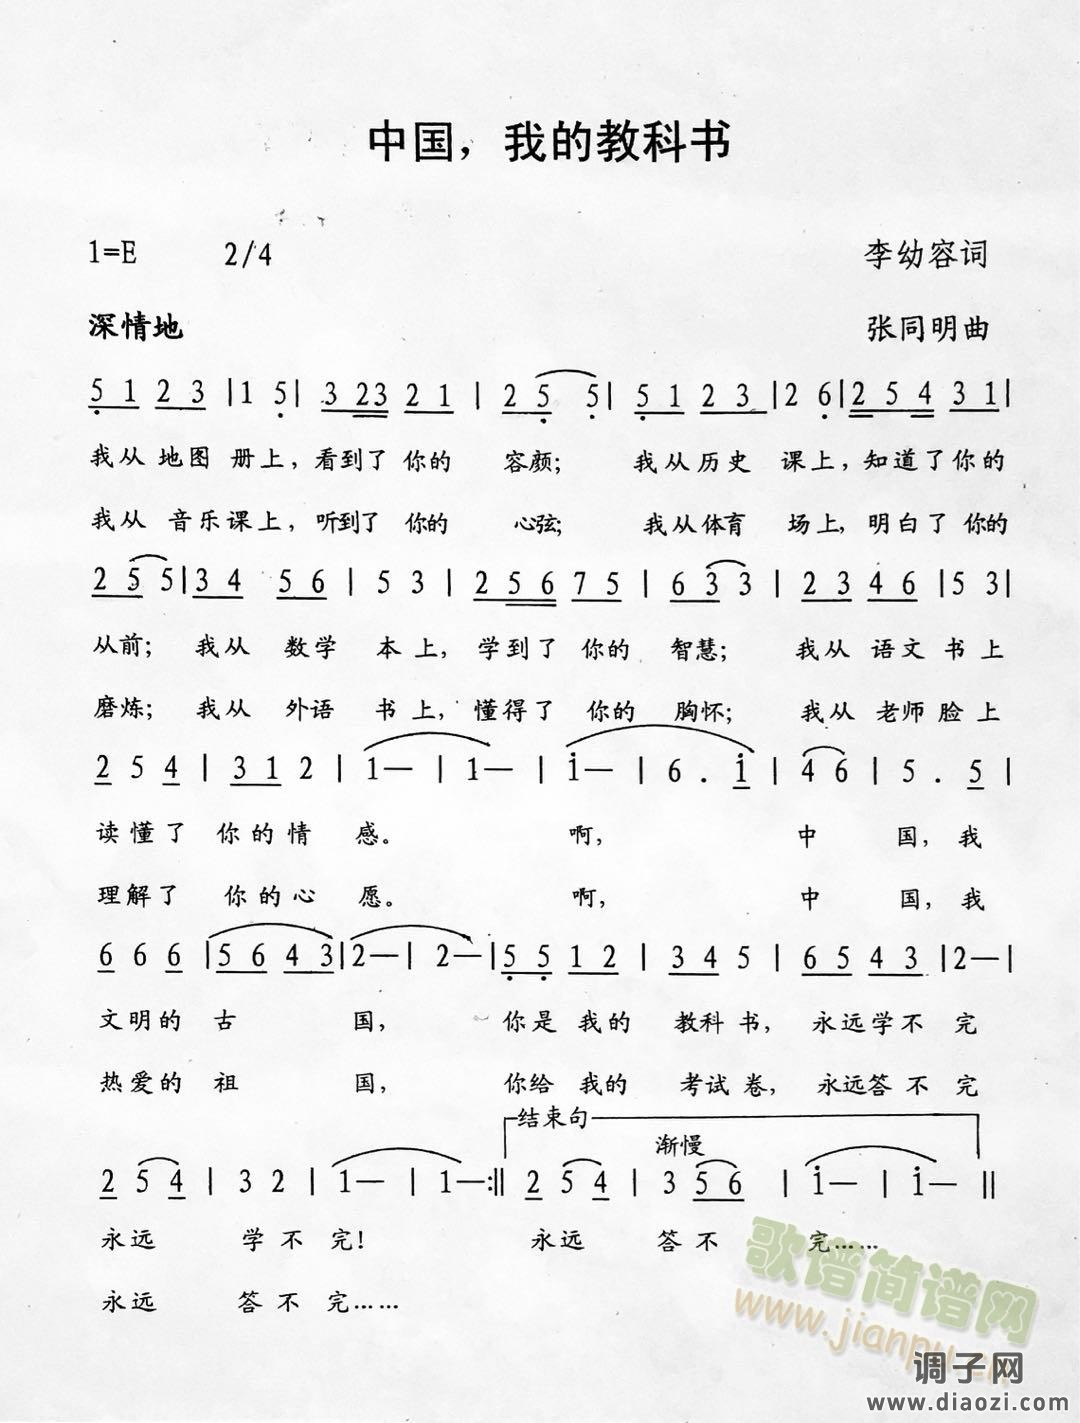 中国，我的教科书
1=E 2/4 李幼容词
深情地 张同明曲
5 1 2 3 |1 5| 3 23 2 1 | 2 5 5| 5 1 2 3 |2 6|2 5 4 3 1|
我从 地图 册上，看到了 你的 容颜； 我从历史 课上，知道了你的
我从 音乐课上，听到了 你的 心弦； 我从体育 场上，明白了你的
2 5 5|3 4 5 6 | 5 3 | 2 5 6 7 5 | 6 3 3 | 2 3 4 6 |5 3|
从前； 我从 数学 本上，学到了 你的 智慧； 我从 语文 书上
磨炼； 我从 外语 书上，懂得了 你的 胸怀； 我从 老师 脸上
2 5 4 | 3 1 2 | 1— | 1— | i— | 6 . i | 4 6 | 5 . 5 |
读懂了 你的情 感。 啊， 中 国，我
理解了 你的心 愿。 啊， 中 国，我
6 6 6 |5 6 4 3|2— | 2—|5 5 1 2 | 3 4 5 | 6 5 4 3 |2—|
文明的 古 国， 你是 我的 教科 书，永远学不 完
热爱的 祖 国， 你给 我的 考试 卷，永远答不 完
结束句
渐慢
2 5 4 | 3 2 | 1— | 1—:|| 2 5 4 | 3 5 6 | i— | i— ||
永远 学不 完！ 永远 答不 完……
永远 答不 完……
歌谱简谱网
www.jianpu.cn
调子网
www.diaozi.com